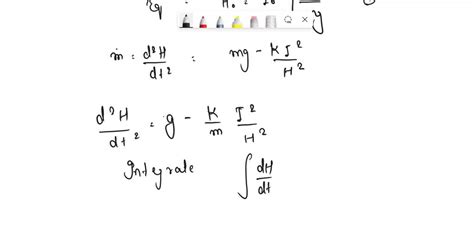 m · d²H/dt² = mg - K I²/H²
d²H/dt² = g - K/m I²/H²
Integrate ∫ dH/dt